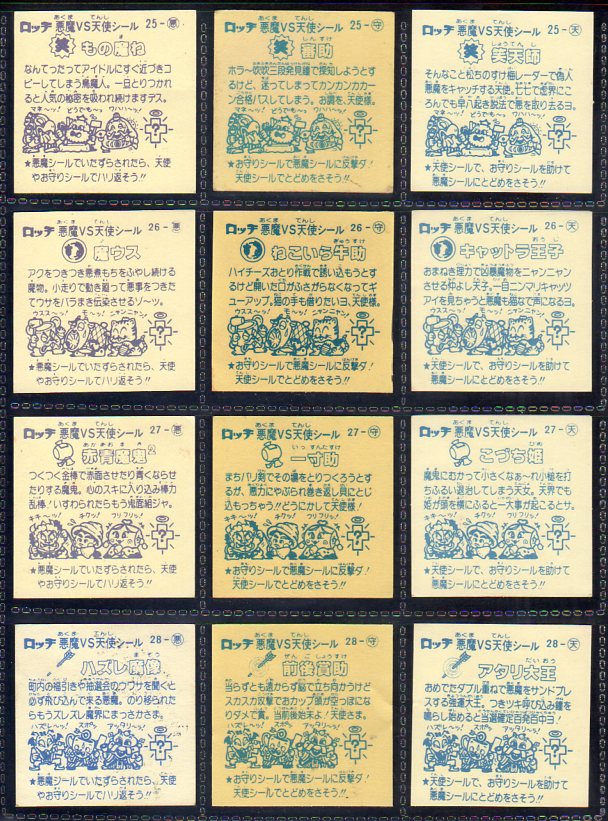 ロッチ 悪魔VS天使シール 25-悪
もの魔ね
なんてったってアイドルにすぐ近づきコ
ピーしてしまう鳥魔人。一旦とりつかれ
ると人気の秘密を吸われ続けますデス。
マネ〜ッ! どうでも〜ッ! ワハハ〜ッ!
★悪魔シールでいたずらされたら、天使
やお守りシールでハリ返そう!!
ロッチ 悪魔VS天使シール 25-守
審助
ホラ〜吹吹三段発見鐘で探知しようとす
るけど、迷ってしまってカンカンカカー
ン合格パスしてしまう。お調を、天使様。
マネ〜ッ! どうでも〜ッ! ワハハ〜ッ!
★お守りシールで悪魔シールに反撃ダ!
天使シールでとどめをさそう!!
ロッチ 悪魔VS天使シール 25-天
笑天師
そんなこと松ちのすけ梅レーダーで偽人
悪魔をキャッチする天使。七十で虚界にこ
ろんでも早八起き説法で悪を取り去るヨ。
マネ〜ッ! どうでも〜ッ! ワハハ〜ッ!
★天使シールで、お守りシールを助けて
悪魔シールにとどめをさそう!!
ロッチ 悪魔VS天使シール 26-悪
魔ウス
アクをつきつき悪煮もちをふやし続ける
魔物。小走りで動き廻って悪事をつきた
てウサをバラまき伝染させるゾ〜ッ。
ウスス〜ッ! モ〜ッ! ニャンニャン!
★悪魔シールでいたずらされたら、天使
やお守りシールでハリ返そう!!
ロッチ 悪魔VS天使シール 26-守
ねこいら牛助
ハイチーズおとり作戦で誘い込もうとす
るけど開いた口がふさがらなくなってギ
ューアップ。猫の手も借りたいヨ、天使様。
ウスス〜ッ! モ〜ッ! ニャンニャン!
★お守りシールで悪魔シールに反撃ダ!
天使シールでとどめをさそう!!
ロッチ 悪魔VS天使シール 26-天
キャットラ王子
おまねき理力で凶暴魔物をニャンニャン
させる仰よし天子。一目ニンマリキャッツ
アイを見ちゃうと悪魔も猫なで声になるヨ。
ウスス〜ッ! モ〜ッ! ニャンニャン!
★天使シールで、お守りシールを助けて
悪魔シールにとどめをさそう!!
ロッチ 悪魔VS天使シール 27-悪
赤青魔鬼
つくつく金棒で赤面させたり青くならせ
たりする魔鬼。心のスキに入り込み棒力
乱棒!いすわられたらもう鬼面組ジャ。
キキ〜ッ! チクッ! フリフリッ!
★悪魔シールでいたずらされたら、天使
やお守りシールでハリ返そう!!
ロッチ 悪魔VS天使シール 27-守
一寸助
まちバリ刺でその場をとりつくろうとす
るが、悪力にやぶられ巻き返し貝にとじ
込もっちゃう!!どうにかして天使様!
キキ〜ッ! チクッ! フリフリッ!
★お守りシールで悪魔シールに反撃ダ!
天使シールでとどめをさそう!!
ロッチ 悪魔VS天使シール 27-天
こづち姫
魔鬼にむかって小さくなぁ〜れ小槌を打
ちふるい退治してしまう天女。天界でも
姫が頭を横にふると一大事が起こるとサ。
キキ〜ッ! チクッ! フリフリッ!
★天使シールで、お守りシールを助けて
悪魔シールにとどめをさそう!!
ロッチ 悪魔VS天使シール 28-悪
ハズレ魔像
町内の福引きや抽選会のウワサを聞くと
必ず飛び込んで来る悪魔。のり移られた
らもうズレズレ魔界にまっさかさま。
ハズレ〜ッ! スカ〜ッ! アッタリ〜ッ!
★悪魔シールでいたずらされたら、天使
やお守りシールでハリ返そう!!
ロッチ 悪魔VS天使シール 28-守
前後賞助
当らずとも遠からず脳で立ち向かうけど
スカスカ攻撃でオカップ頭が空っぽにな
りダメで賞。当前後始末よ、天使さま。
ハズレ〜ッ! スカ〜ッ! アッタリ〜ッ!
★お守りシールで悪魔シールに反撃ダ!
天使シールでとどめをさそう!!
ロッチ 悪魔VS天使シール 28-天
アタリ大王
おめでたダブル重ねで悪魔をサンドプレ
スする強運大王。つきツキ呼び込み鐘を
鳴らし始めると当選確定百発百中ヨ!
ハズレ〜ッ! スカ〜ッ! アッタリ〜ッ!
★天使シールで、お守りシールを助けて
悪魔シールにとどめをさそう!!